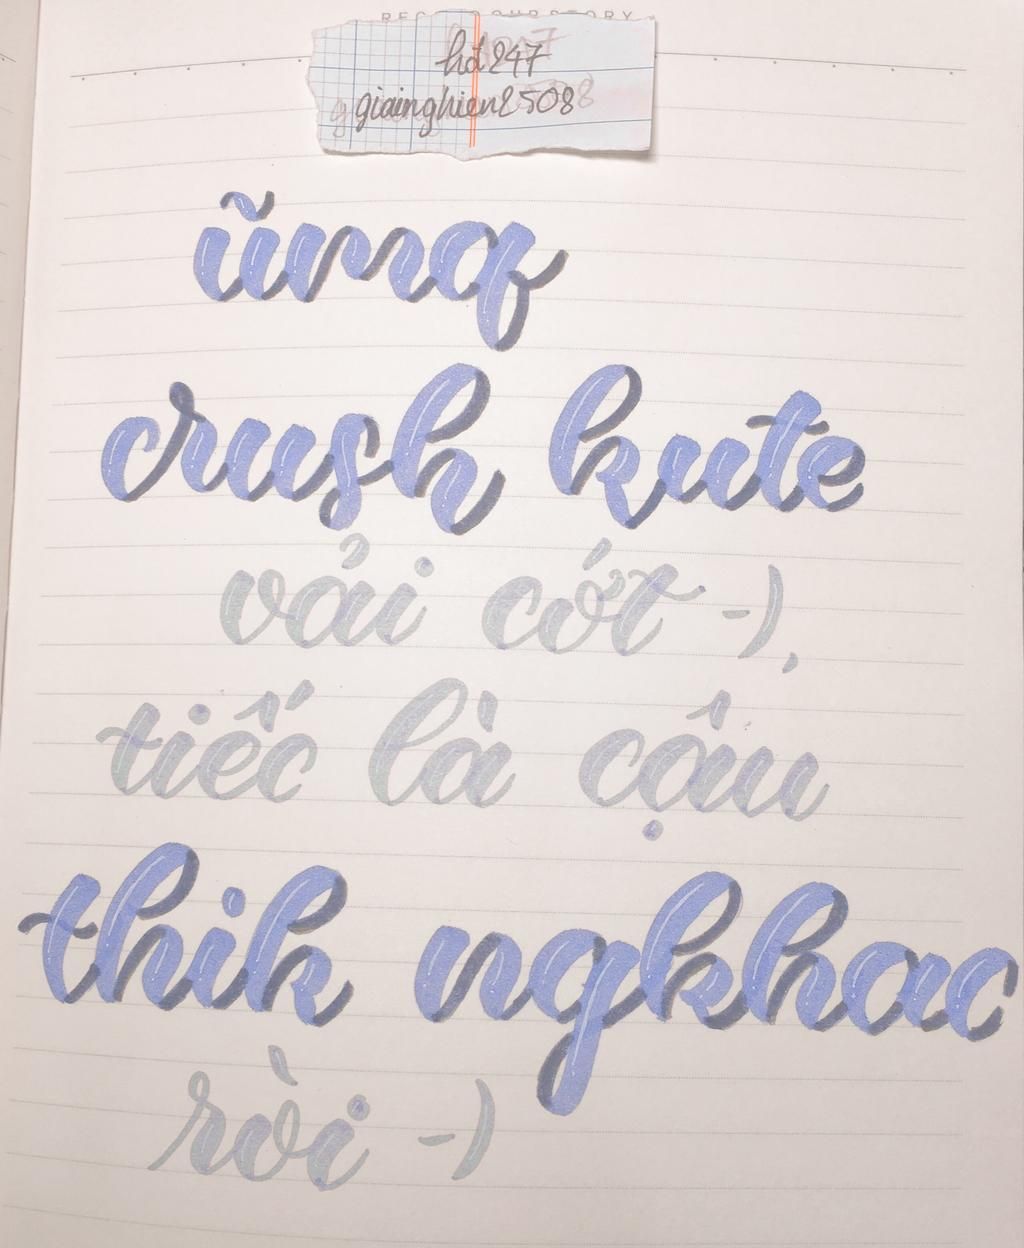 hd247
giainghien2508
ũmq
crush kute
vải cớt -),
tiếc là cậu
thik ngkhac
rồi -)